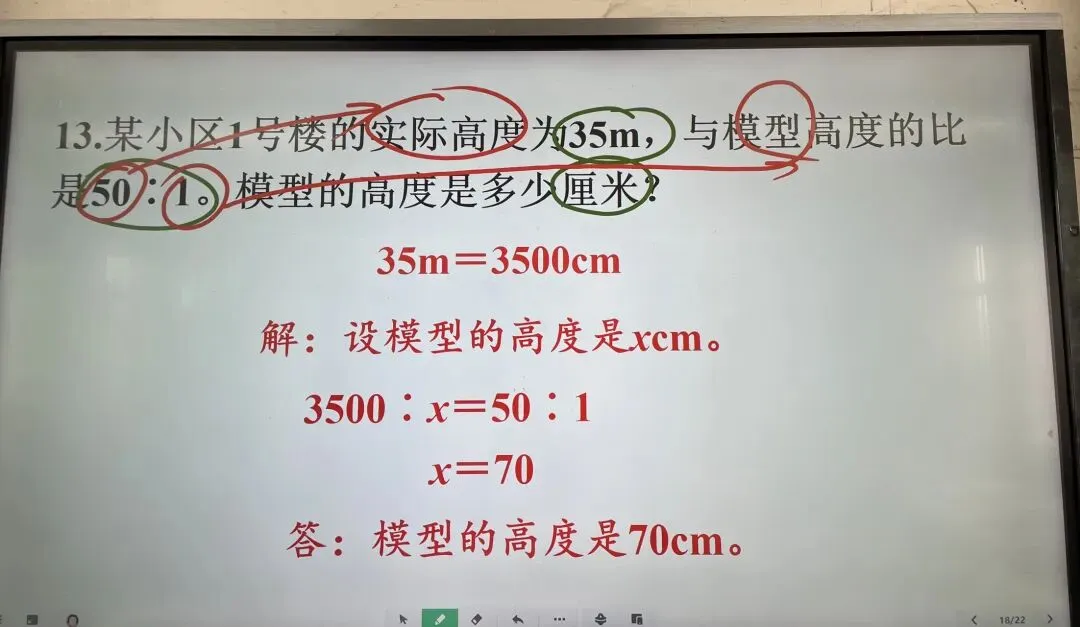 13.某小区1号楼的实际高度为35m，与模型高度的比
是50∶1。模型的高度是多少厘米？
35m＝3500cm
解：设模型的高度是xcm。
3500∶x＝50∶1
x＝70
答：模型的高度是70cm。
18/22